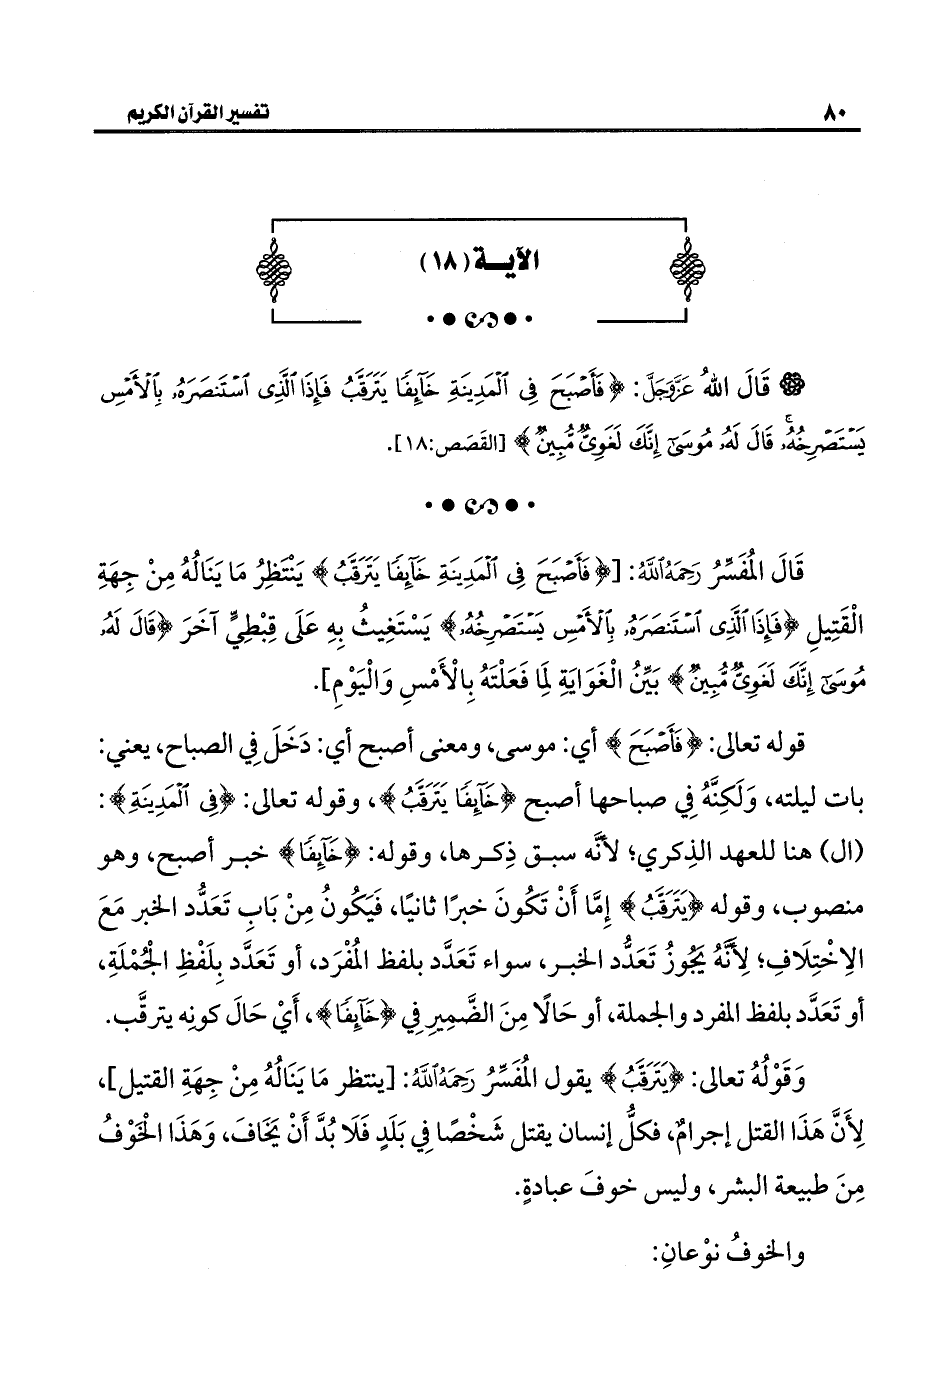 ٨٠ تفسير القرآن الكريم
الآيـة (١٨)
قَالَ اللهُ عَزَّوَجَلَّ: ﴿فَأَصْبَحَ فِي الْمَدِينَةِ خَائِفًا يَتَرَقَّبُ فَإِذَا الَّذِي اسْتَنصَرَهُ بِالْأَمْسِ
يَسْتَصْرِخُهُ ۚ قَالَ لَهُ مُوسَىٰ إِنَّكَ لَغَوِيٌّ مُّبِينٌ﴾ [القَصَص:١٨].
قَالَ المُفَسِّرُ رَحِمَهُ اللَّهُ: [﴿فَأَصْبَحَ فِي الْمَدِينَةِ خَائِفًا يَتَرَقَّبُ﴾ يَنْتَظِرُ مَا يَنَالُهُ مِنْ جِهَةِ
الْقَتِيلِ ﴿فَإِذَا الَّذِي اسْتَنصَرَهُ بِالْأَمْسِ يَسْتَصْرِخُهُ﴾ يَسْتَغِيثُ بِهِ عَلَى قِبْطِيٍّ آخَرَ ﴿قَالَ لَهُ
مُوسَىٰ إِنَّكَ لَغَوِيٌّ مُّبِينٌ﴾ بَيِّنُ الْغَوَايَةِ لِمَا فَعَلْتَهُ بِالْأَمْسِ وَالْيَوْمِ].
قوله تعالى: ﴿فَأَصْبَحَ﴾ أي: موسى، ومعنى أصبح أي: دَخَلَ فِي الصباح، يعني:
بات ليلته، وَلَكِنَّهُ فِي صباحها أصبح ﴿خَائِفًا يَتَرَقَّبُ﴾، وقوله تعالى: ﴿فِي الْمَدِينَةِ﴾:
(ال) هنا للعهد الذِكري؛ لأنَّه سبق ذِكرها، وقوله: ﴿خَائِفًا﴾ خبر أصبح، وهو
منصوب، وقوله ﴿يَتَرَقَّبُ﴾ إِمَّا أَنْ تَكُونَ خبرًا ثانيًا، فَيَكُونُ مِنْ بَابِ تَعَدُّد الخبر مَعَ
الِاخْتِلَافِ؛ لِأَنَّهُ يَجُوزُ تَعَدُّد الخبر، سواء تَعَدَّد بلفظ المُفْرَد، أو تَعَدَّد بِلَفْظِ الجُمْلَةِ،
أو تَعَدَّد بلفظ المفرد والجملة، أو حَالًا مِنَ الضَّمِيرِ فِي ﴿خَائِفًا﴾، أَيْ حَالَ كونِه يترقَّب.
وَقَوْلُهُ تعالى: ﴿يَتَرَقَّبُ﴾ يقول المُفَسِّرُ رَحِمَهُ اللَّهُ: [ينتظر مَا يَنَالُهُ مِنْ جِهَةِ القتيل]،
لِأَنَّ هَذَا القتل إجرامٌ، فكلُّ إنسان يقتل شَخْصًا فِي بَلَدٍ فَلَا بُدَّ أَنْ يَخَافَ، وَهَذَا الخَوْفُ
مِنَ طبيعة البشر، وليس خوفَ عبادةٍ.
والخوفُ نوْعانِ: